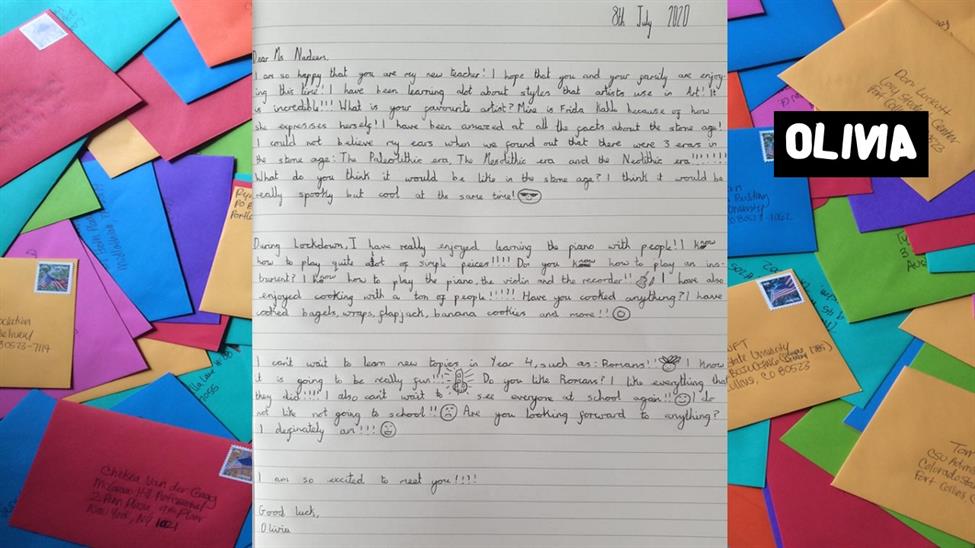 8th July 2020
Dear Ms Nadeem,
I am so happy that you are my new teacher! I hope that you and your family are enjoy-
ing this time! I have been learning alot about styles that artists use in Art! It
is incredible!!!! What is your favourite artist? Mine is Frida Kahlo because of how
she expresises herself! I have been amazed at all the facts about the stone age!
I could not believe my ears when we found out that there were 3 eras in
the stone age: The Paleolithic era, The Mesolithic era and the Neolithic era!!!!!!!
What do you think it would be like in the stone age? I think it would be
really spooky but cool at the same time!
During lockdown, I have really enjoyed learning the piano with people! I know
how to play quite alot of simple peices!!!! Do you know how to play an ins-
trument? I know how to play the piano, the violin and the recorder!! I have also
enjoyed cooking with a ton of people!!!!! Have you cooked anything? I have
cooked bagels, wraps, flapjack, banana cookies and more!!
I can't wait to learn new topics in Year 4, such as: Romans!! I know
it is going to be really fun!! Do you like Romans? I like everything that
they did!!! I also can't wait to see everyone at school again!! I do
not like not going to school!! Are you looking forward to anything?
I definately am!!!
I am so excited to meet you!!!!
Good luck,
Olivia
OLIVIA
Chelsea Van der Gaag
McGraw-Hill Professional
2 Penn Plaza, 9th Floor
New York, NY 10121
80523-7114
Fort Collins, CO 80523